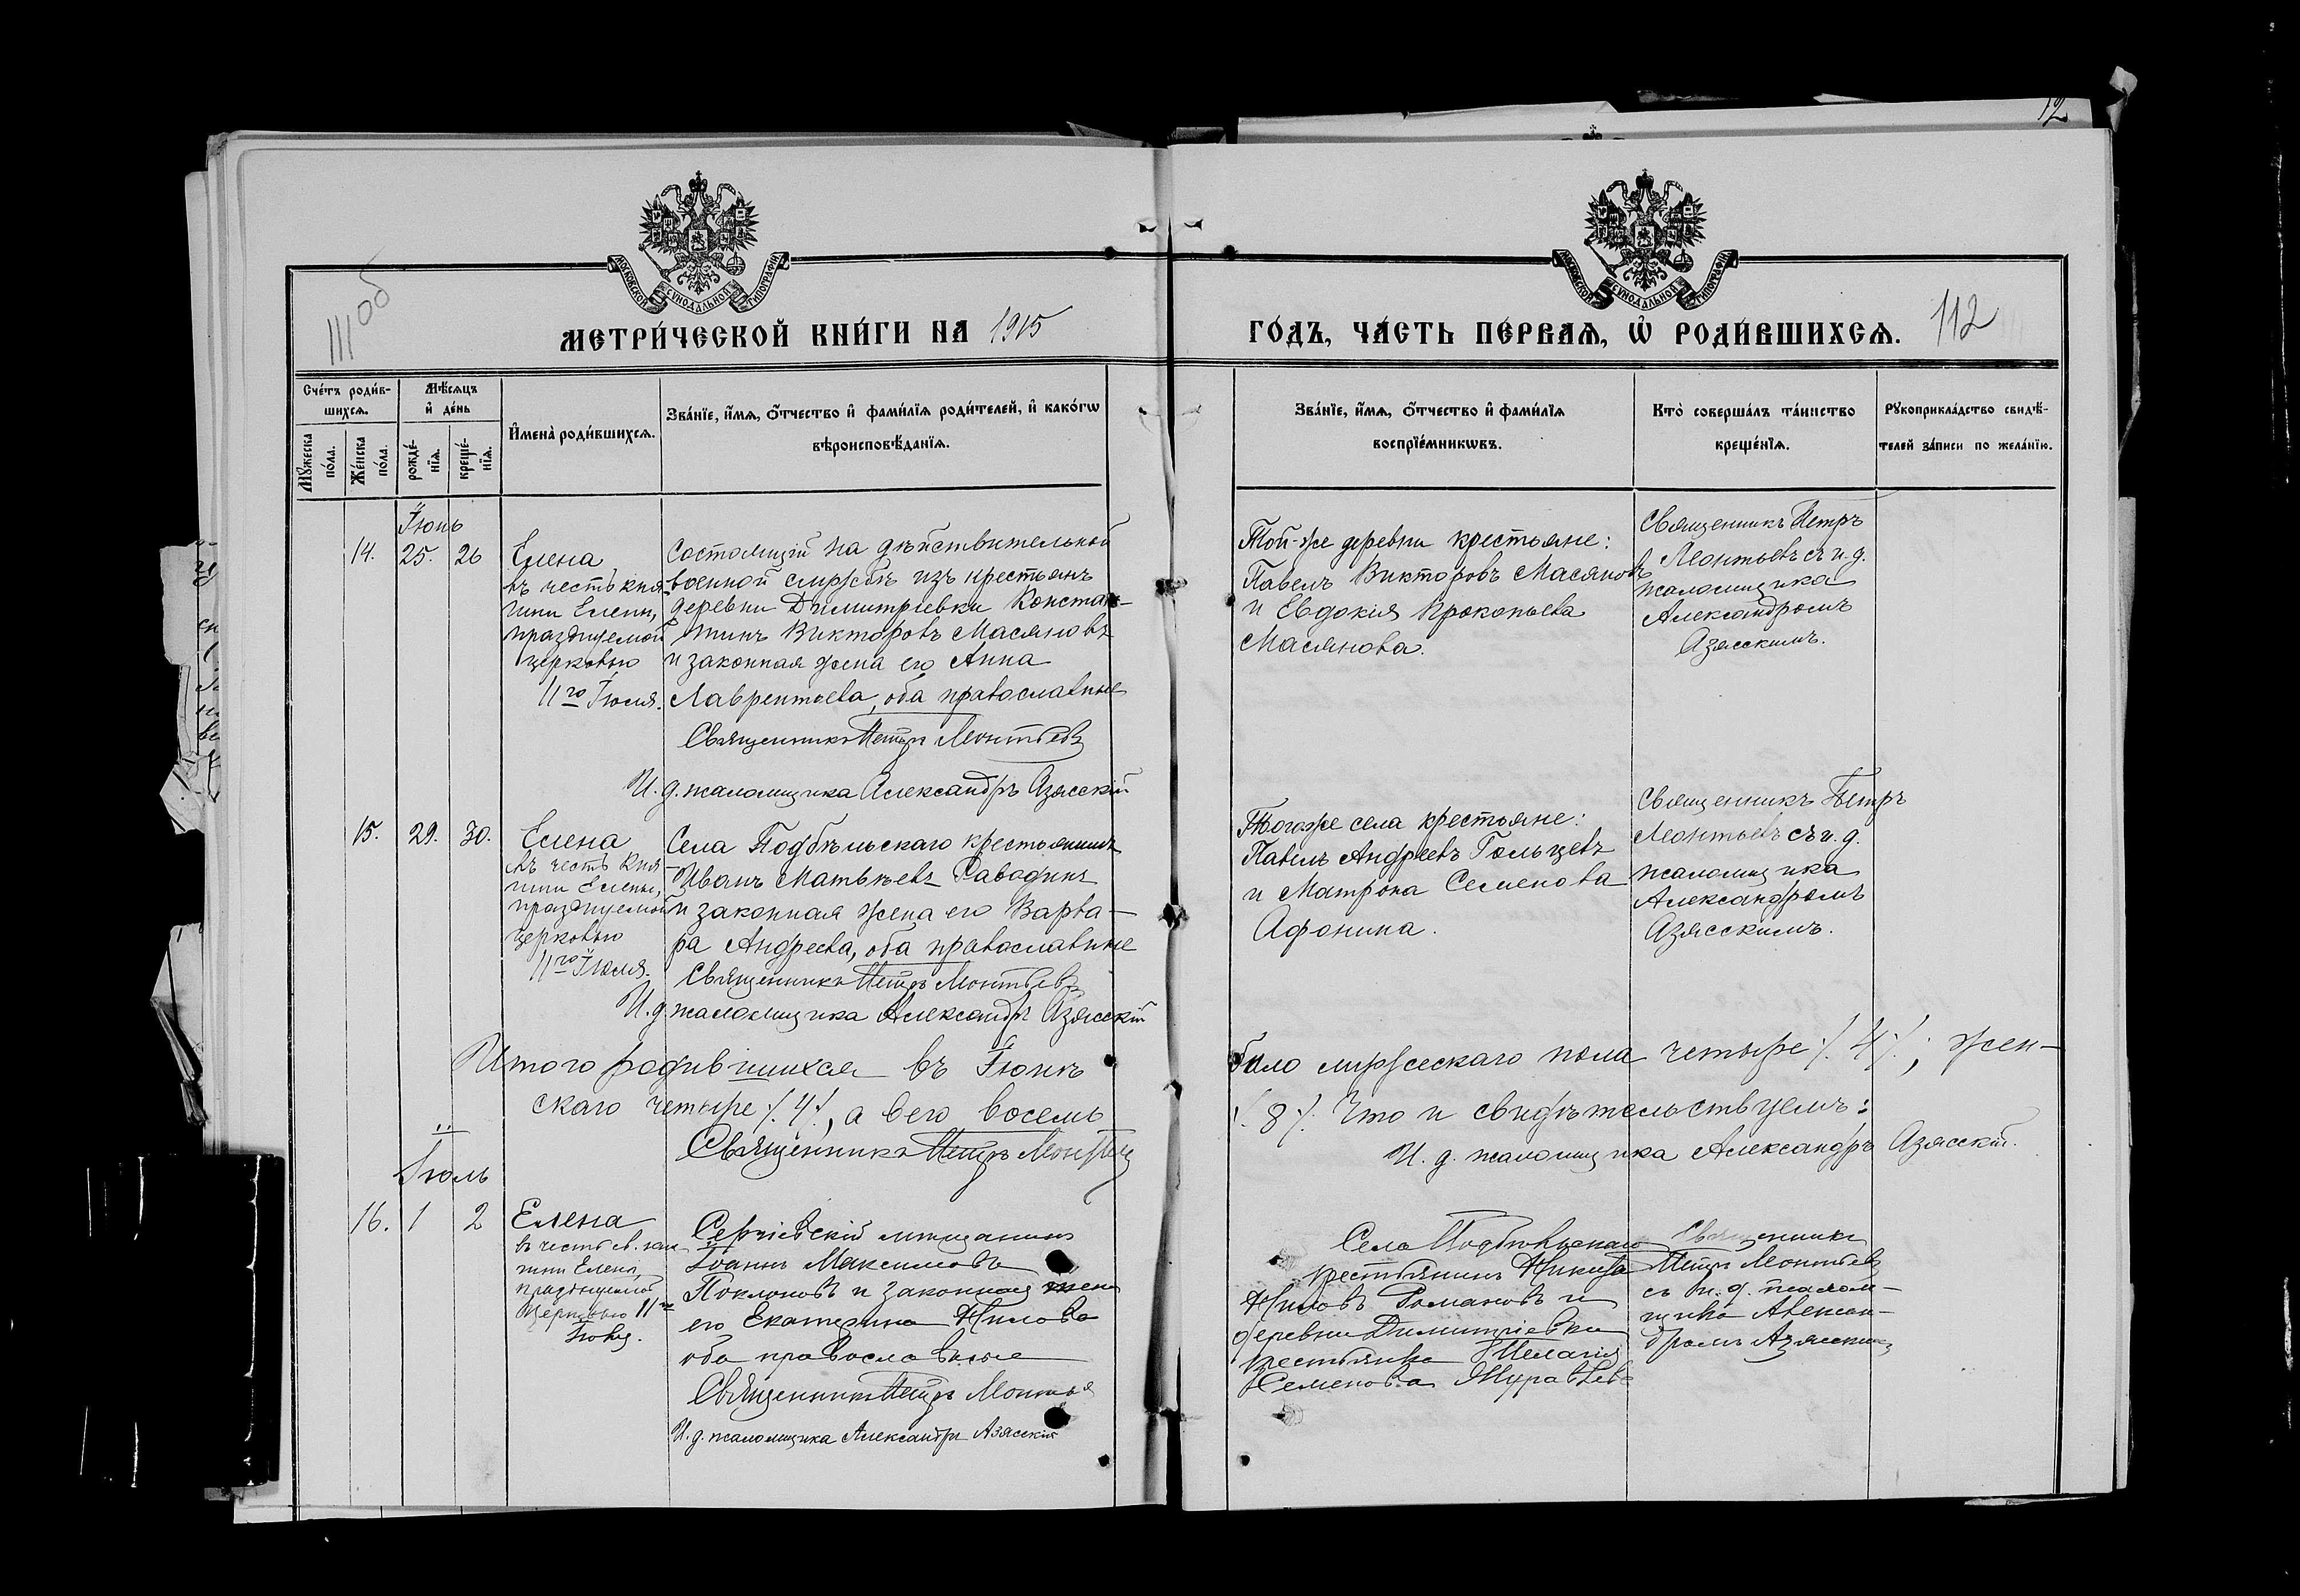 12
111 об
МОСКОВСКОЙ СѴНОДАЛЬНОЙ ТИПОГРАФІИ
МОСКОВСКОЙ СѴНОДАЛЬНОЙ ТИПОГРАФІИ
МЕТРИ́ЧЕСКОЙ КНИ́ГИ НА 1915
ГО́ДЪ, ЧА́СТЬ ПЕ́РВАѦ, Ѡ҆ РОДИ́ВШИХСѦ. 112
Сче́тъ роди́в-
шихсѧ.
Мꙋ́жеска
по́ла.
Же́нска
по́ла.
Мѣ́сѧцъ
и҆ де́нь
рожде́-
нїѧ.
креще́-
нїѧ.
И҆мена̀ роди́вшихсѧ.
Зва́нїе, и҆́мѧ, ѻ҆́тчество и҆ фами́лїѧ роди́телей, и҆ како́гѡ
вѣроисповѣ́данїѧ.
Зва́нїе, и҆́мѧ, ѻ҆́тчество и҆ фами́лїѧ
воспрїе́мникѡвъ.
Кто̀ соверша́лъ та́инство
креще́нїѧ.
Рꙋкоприкла́дство свидѣ́-
телей за́писи по жела́нїю.
Іюнь
14. 25. 26
Елена
въ честь кня-
гини Елены,
празднуемой
церковью
11го Іюля.
Состоящій на дѣйствительной
военной службѣ изъ крестьянъ
деревни Димитріевки Констан-
тинъ Викторовъ Масяновъ
и законная жена его Анна
Лаврентьева, оба православные
Священникъ Петръ Леонтьевъ
И. д. псаломщика Александръ Азясскій
Той-же деревни крестьяне:
Павелъ Викторовъ Масяновъ
и Евдокія Прокопьева
Масянова.
Священникъ Петръ
Леонтьевъ съ и. д.
псаломщика
Александромъ
Азясскимъ.
15. 29. 30.
Елена
въ честь Кня-
гини Елены,
празднуемой
церковью
11го Іюля.
Села Подбѣльскаго крестьянинъ
Иванъ Матвѣевъ Саводинъ
и законная жена его Варва-
ра Андреева, оба православные
Священникъ Петръ Леонтьевъ
И. д. псаломщика Александръ Азясскій
Тогоже села крестьяне:
Павелъ Андреевъ Гольцевъ
и Матрона Семенова
Афонина.
Священникъ Петръ
Леонтьевъ съ и. д.
псаломщика
Александромъ
Азясскимъ.
Итого родившихся въ Іюнѣ было мужескаго пола четыре /. 4 /.; жен-
скаго четыре /. 4 /., а всего восемь /. 8 /. Что и свидѣтельствуемъ:
Священникъ Петръ Леонтьевъ
И. д. псаломщика Александръ Азясскій.
Іюль
16. 1 2
Елена
въ честь св. кня-
гини Елены,
празднуемой
Церковью 11го
Іюля.
Сергіевскій мѣщанинъ
Іоаннъ Максимовъ
Поклоновъ и законная жена
его Екатерина Нилова
оба православные
Священникъ Петръ Леонтьев
И. д. псаломщика Александръ Азясскій
Села Подбѣльскаго
крестьянинъ Никита
Ниловъ Романовъ и
деревни Димитріевки
крестьянка Пелагія
Семенова Муравьева
Священникъ
Петръ Леонтьевъ
съ и. д. псалом-
щика Алексан-
дромъ Азясскимъ